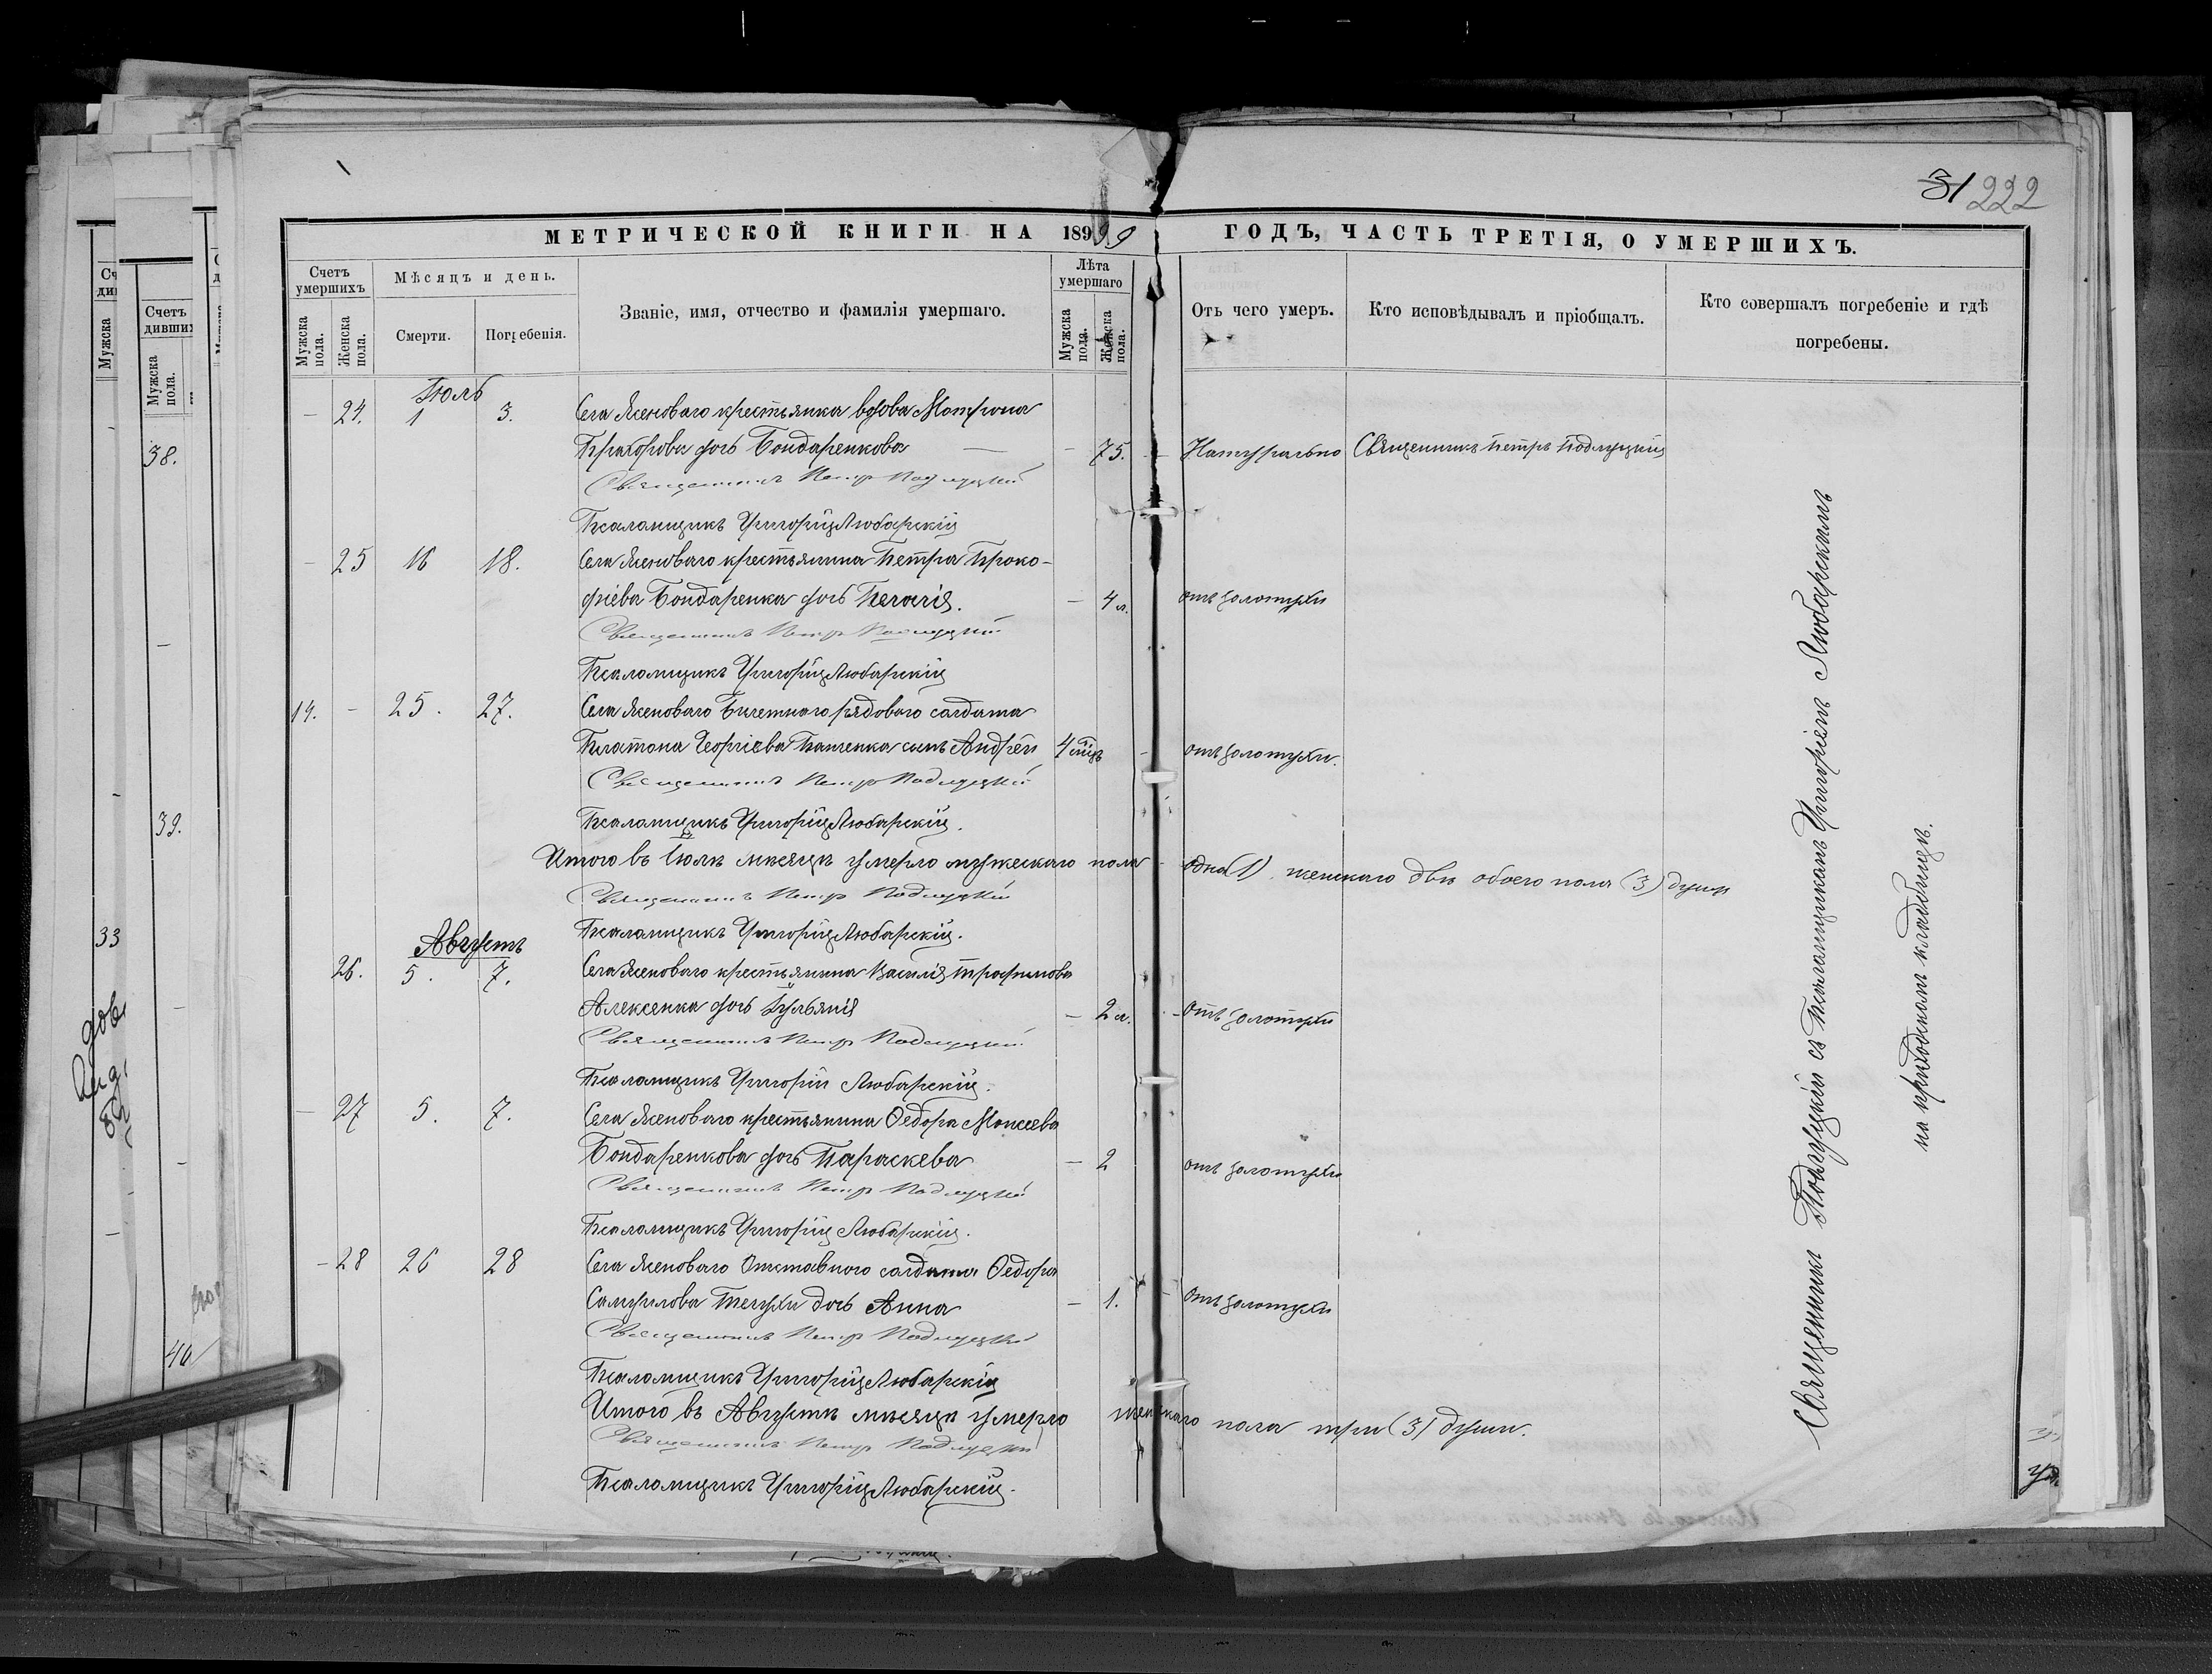 31 222
МЕТРИЧЕСКОЙ КНИГИ НА 1899 ГОДЪ, ЧАСТЬ ТРЕТІЯ, О УМЕРШИХЪ.
Счетъ умершихъ
Мужска пола.
Женска пола.
Мѣсяцъ и день.
Смерти.
Погребенія.
Званіе, имя, отчество и фамилія умершаго.
Лѣта умершаго
Мужска пола.
Женска пола.
Отъ чего умеръ.
Кто исповѣдывалъ и пріобщалъ.
Кто совершалъ погребеніе и гдѣ погребены.
Іюль
- 24. 1 3. Села Ясеноваго крестьянка вдова Матрона
Прахорова дочь Бондаренкова — - 75. Натурально Священникъ Петръ Подлуцкій
Священникъ Петръ Подлуцкій
Псаломщикъ Григорій Любарскій
- 25 16 18. Села Ясеноваго крестьянина Петра Проко-
фіева Бондаренка дочь Пелагія. - 4 л. отъ золотухи
Священникъ Петръ Подлуцкій
Псаломщикъ Григорій Любарскій
14. - 25. 27. Села Ясеноваго Билетного рядового салдата
Платона Георгіева сынъ Андрей 4 мцъ - отъ золотухи.
Священникъ Петръ Подлуцкій
Псаломщикъ Григорій Любарскій.
Итого въ Іюлѣ мѣсяцѣ умерло мужескаго пола одна (1) женскаго двѣ обоего пола (3) душъ
Священникъ Петръ Подлуцкій
Псаломщикъ Григорій Любарскій.
Августъ
26. 5. 7. Села Ясеноваго крестьянина Василія Трофимова
Алексенка дочь Іульянія - 2 л. - отъ золотухи
Священникъ Петръ Подлуцкій
Псаломщикъ Григорій Любарскій.
- 27 5. 7. Села Ясеноваго крестьянина Ѳедора Моисеева
Бондаренкова дочь Параскева - 2 отъ золотухи
Священникъ Петръ Подлуцкій
Псаломщикъ Григорій Любарскій.
- 28 26 28 Села Ясеноваго Отставного салдата Ѳедора
Самуилова дочь Анна - 1. - отъ золотухи
Священникъ Петръ Подлуцкій
Псаломщикъ Григорій Любарскій
Итого въ Августѣ мѣсяцѣ умерло женскаго пола три (3) души.
Священникъ Петръ Подлуцкій
Псаломщикъ Григорій Любарскій.
Священникъ Подлуцкій съ Псаломщикомъ Григоріемъ Любарскимъ
на приходскомъ кладбищѣ.
Счетъ
Мужска пола.
38.
39.
33
40